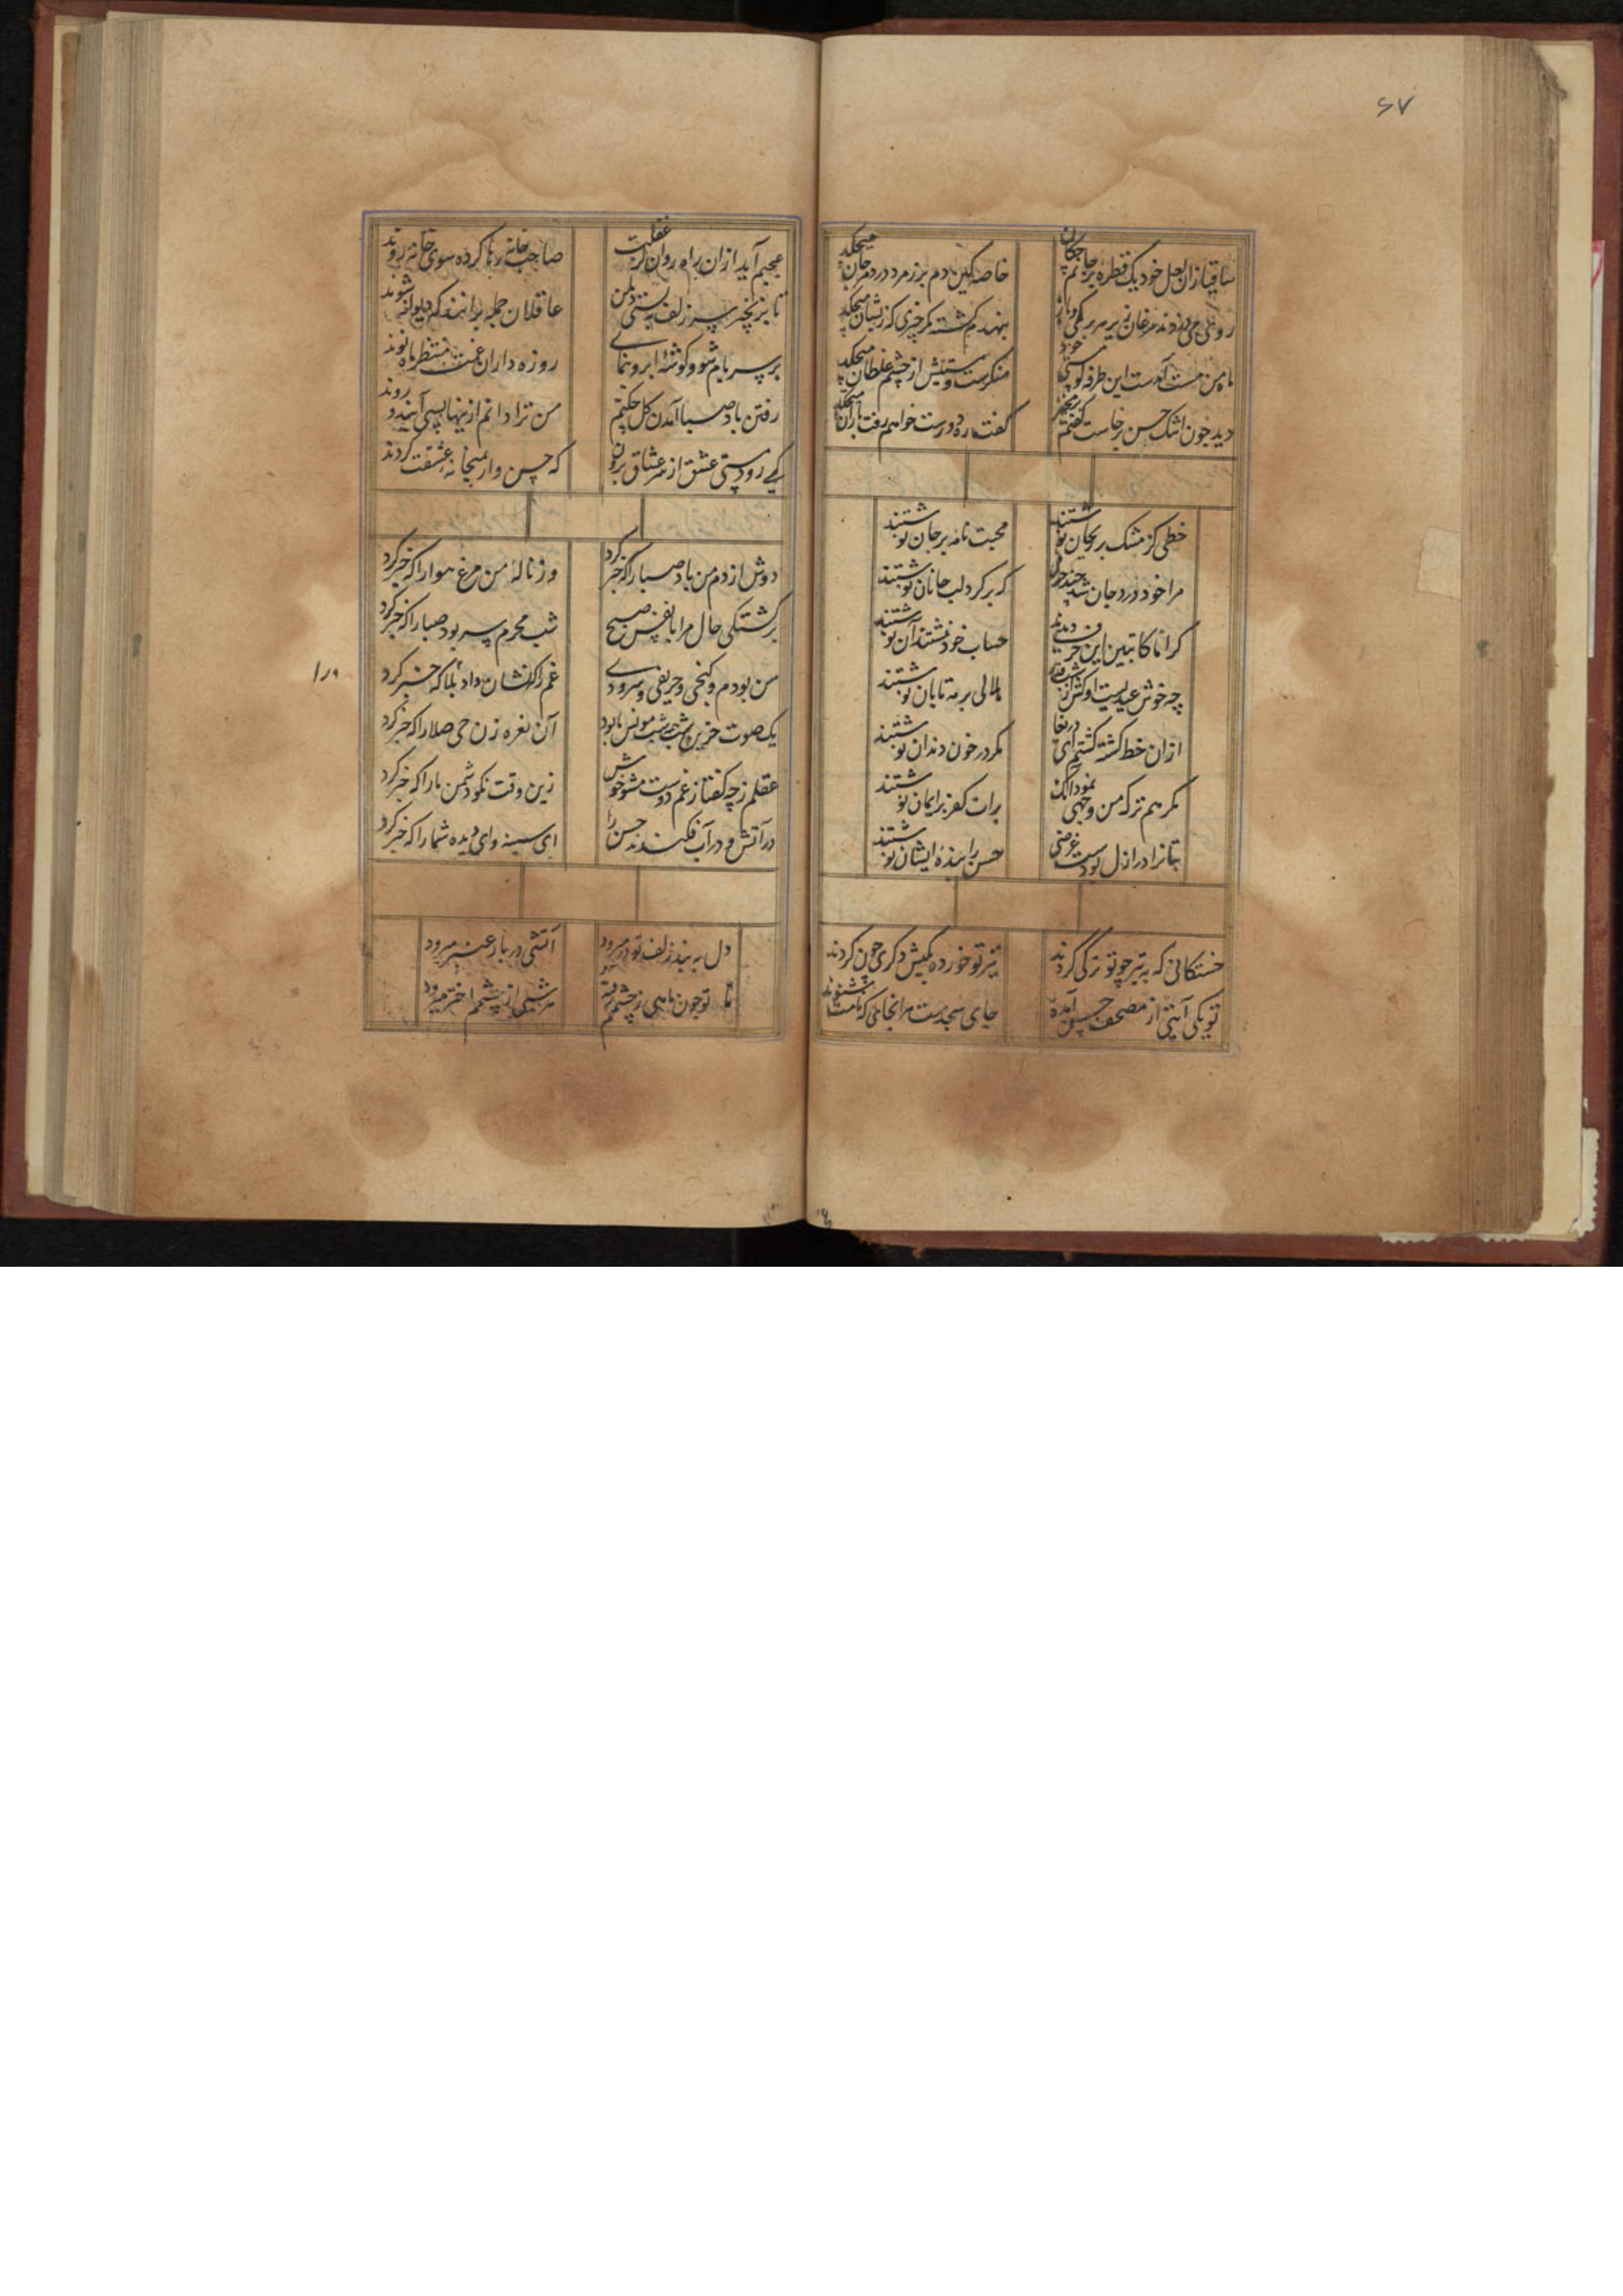 ۶۷
ساقیا زان لعل خود یک قطره بر جانم چکان
خاصه کین دم بر زمرد در و مرجان میچکد
روغنی می دزدند مرغان
میچکد
ماه من مست آمدست این طرفه کو مستی خود
منکرست و مستیش از چشم غلطان میچکد
دید چون اشک حسن برخاست گفتم
گفت ره دورست خواهم رفت باران میچکد
خطی کز مشک بر ریحان نوشتند
محبت نامه بر جان نوشتند
مرا خود درد جان شد
که بر گرد لب جانان نوشتند
کراما کاتبین این حرف دیدند
حساب خود نشستند آن نوشتند
چه خوش عیدیست
هلالی بر مه تابان نوشتند
ازان خط کشته گشتم ای دریغا
مگر در خون دندان نوشتند
مگر هم ترک من وجهی نمود آنک
برات کفر بر ایمان نوشتند
بتانرا در ازل بودست عرضی
حسن را بنده ایشان نوشتند
خستگانی که به تیر چو تو ترکی گردند
تیر تو خورده بکیش دگری چون گردند
تو یکی آیتی از مصحف حسن آمده
جای سجدست مر انجایی که نامت شنوند
عجبم آید ازان راه روان کز غفلت
صاحب خانه رها کرده سوی خانه روند
تا بزنجیر سر زلف ببستی دل من
عاقلان جمله بر آنند که دیوانه شوند
بر سر بام شو و گوشه ابرو بنمای
روزه داران غمت منتظر ماه نوند
رفتن باد صبا آمدن گل چکنم
من ترا دانم ازینها بسی آیند و روند
کی رود مستی عشق از سر عشاق برون
که حسن وار بمیخانه عشقت گروند
دوش از دم من باد صبا را که خبر کرد
وز ناله من مرغ هوا را که خبر کرد
برگشتگی حال مرا با نفس صبح
شب محرم سر بود صبا را که خبر کرد
من بودم و کنجی و حریفی و سرودی
غم را که نشان داد بلا که خبر کرد
یک صوت حزین شب مونس ما بود
آن نعره زن حی صلا را که خبر کرد
عقلم ز چه گفتا ز غم دوست مشو خوش
زین وقت نکو دشمن ما را که خبر کرد
در آتش و در آب فکندند حسن را
ای سینه و ای دیده شما را که خبر کرد
دل به بند زلف تو در میرود
آتشی در بار عنبر میرود
تا تو چون ماهی ز چشمم رفته
هر شبی از چشمم اختر میرود